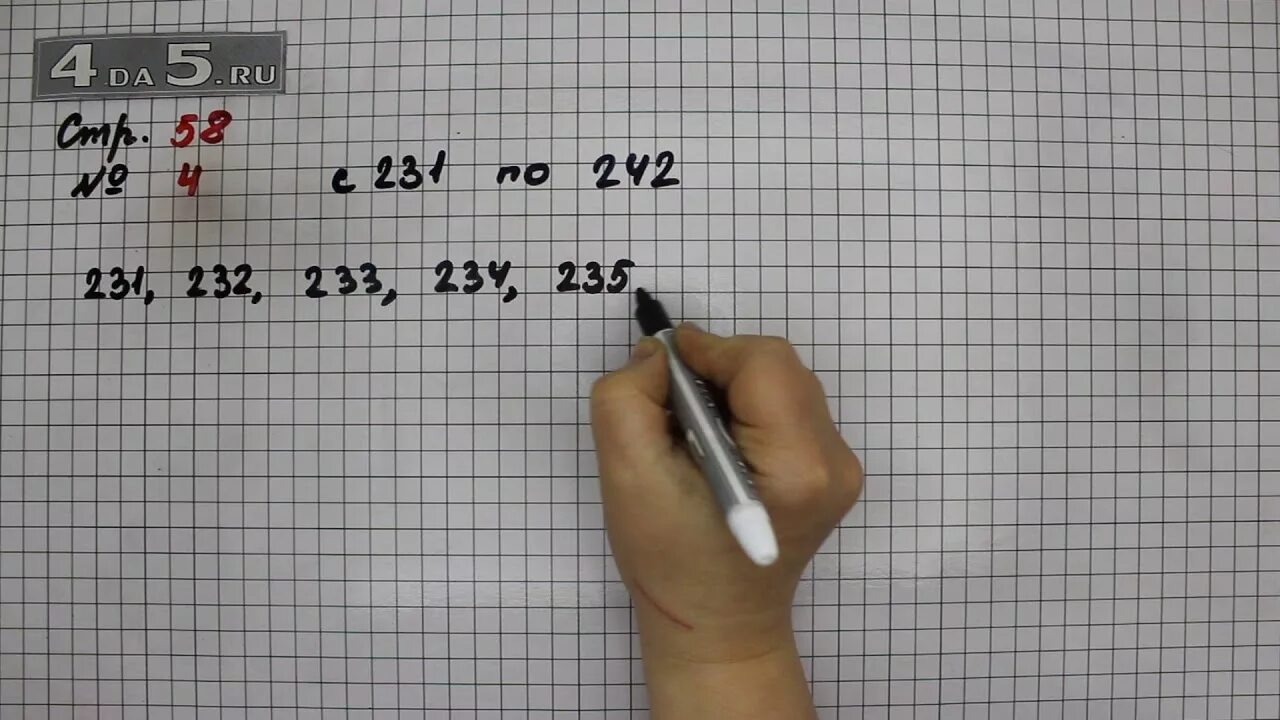 4DA5.RU
Стр. 58
№ 4 с 231 по 242
231, 232, 233, 234, 235,